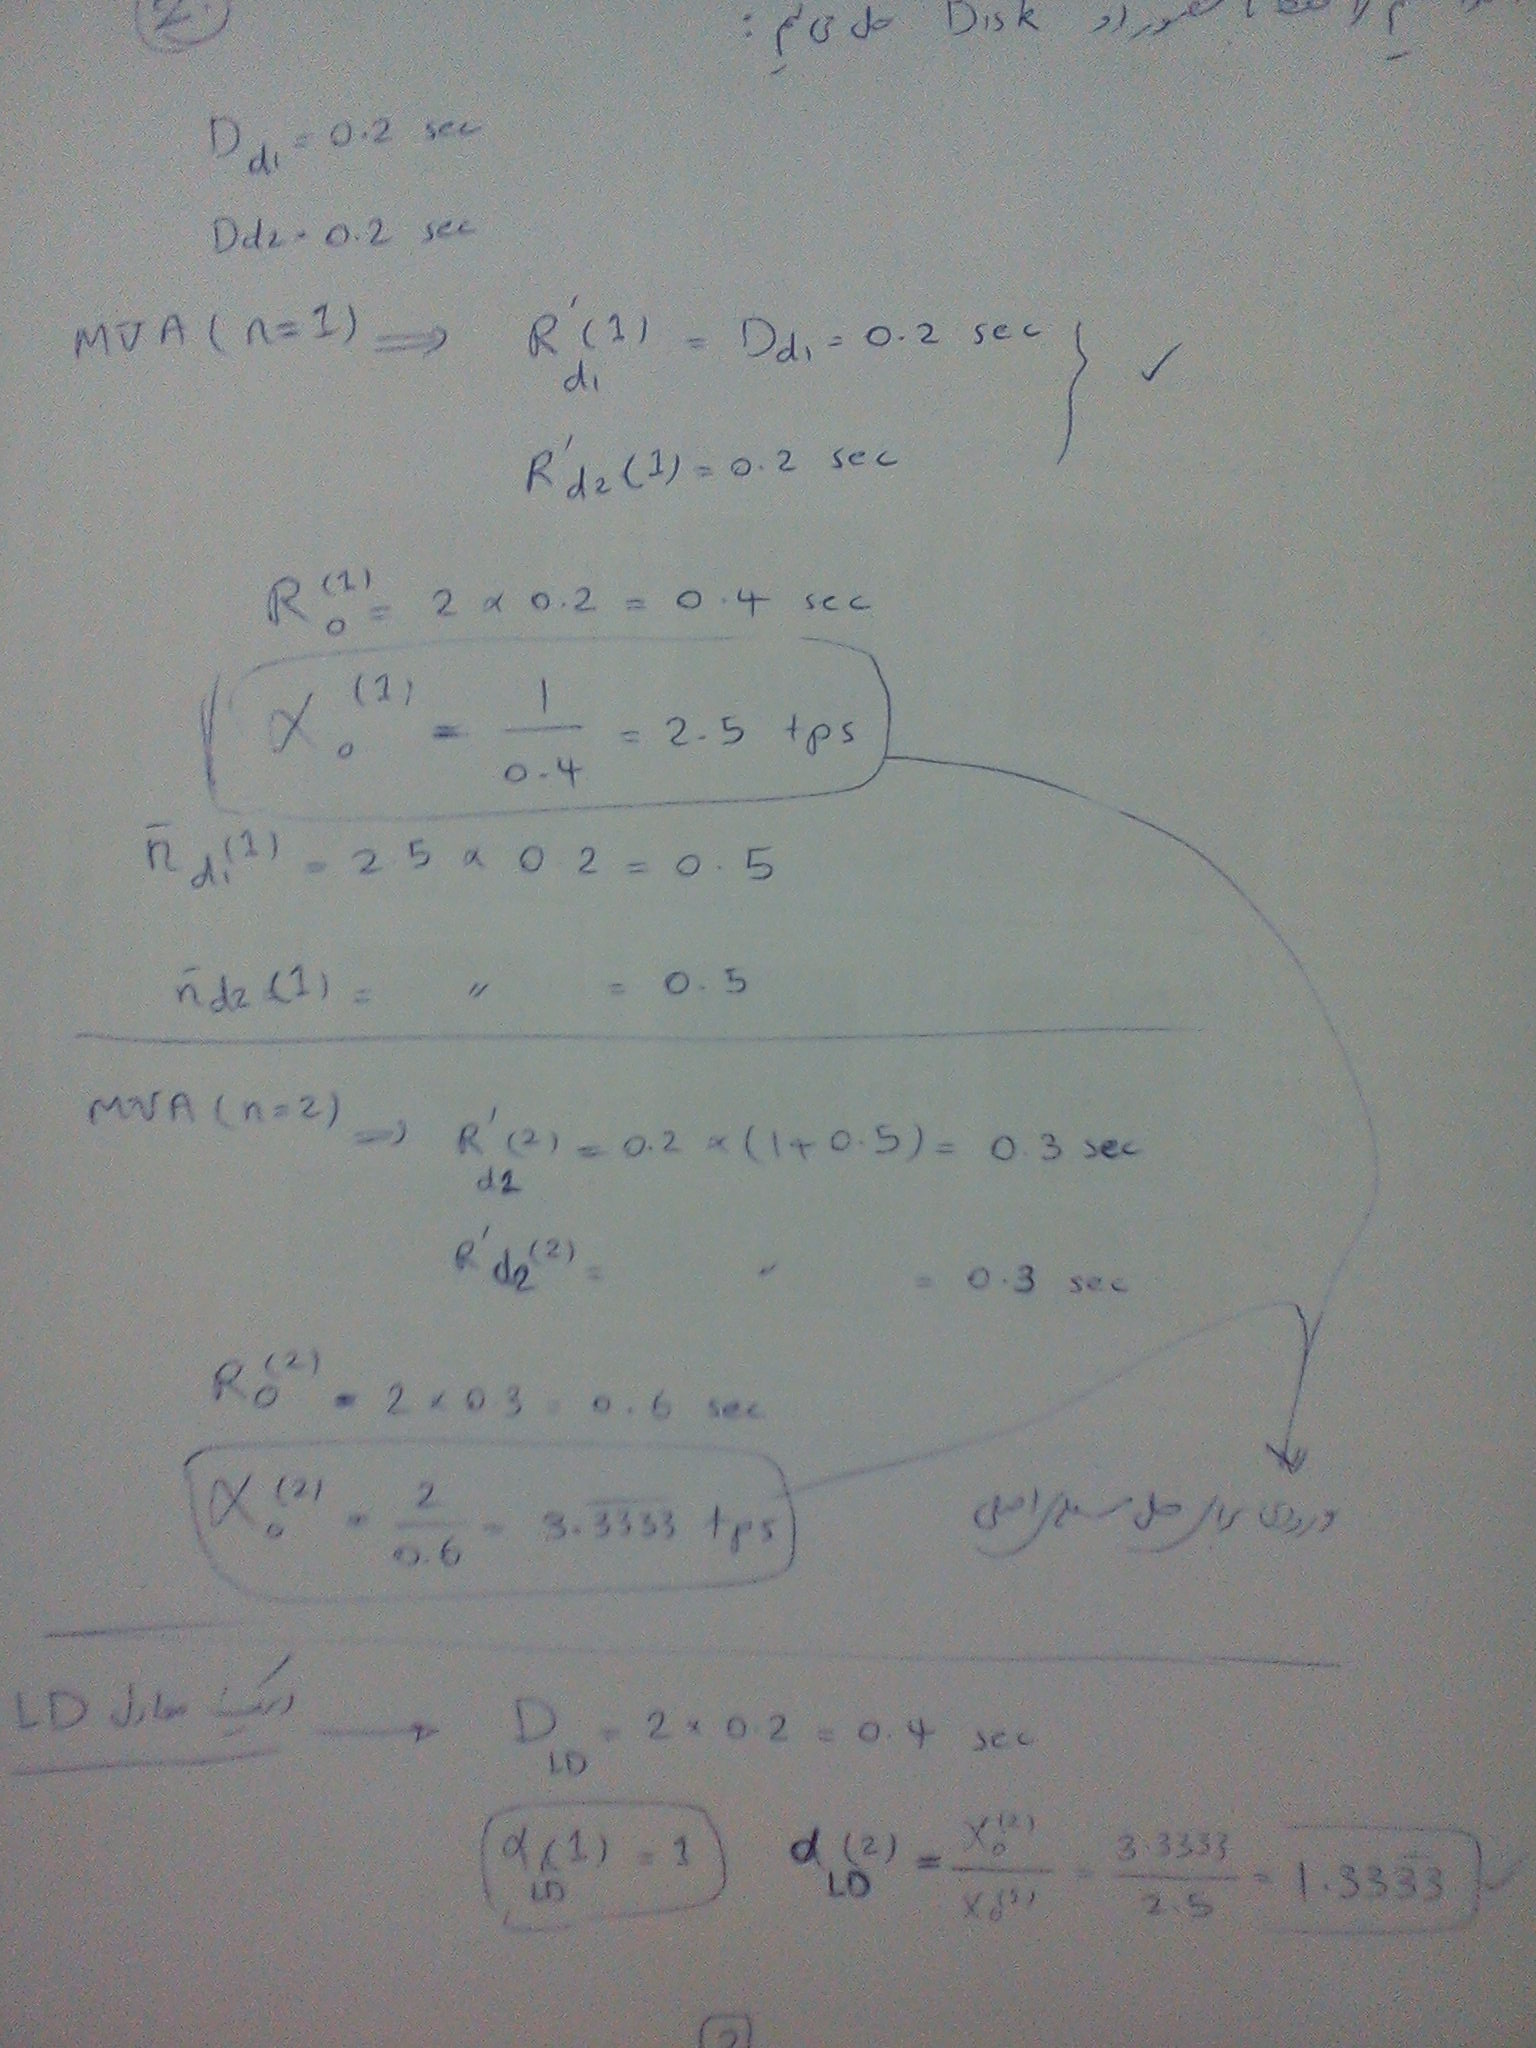 2.
Disk حل می کنیم :
D_d1 = 0.2 sec
Dd2 = 0.2 sec
MVA (n=1) ⇒ R'_d1(1) = D_d1 = 0.2 sec ✓
R'_d2(1) = 0.2 sec
R_o^(1) = 2 × 0.2 = 0.4 sec
X_o^(1) = 1/0.4 = 2.5 tps
n̄_d1(1) = 2.5 × 0.2 = 0.5
n̄_d2(1) = " = 0.5
MVA (n=2) ⇒ R'_d2(2) = 0.2 × (1+0.5) = 0.3 sec
R'_d2(2) = " = 0.3 sec
R_o^(2) = 2 × 0.3 = 0.6 sec
X_o^(2) = 2/0.6 = 3.3333 tps
ورودی برای حل سیستم اصلی
LD معادل → D_LD = 2 × 0.2 = 0.4 sec
α_LD(1) = 1 α_LD(2) = X_o^(2)/X_o^(1) = 3.3333/2.5 = 1.3333 ✓
2